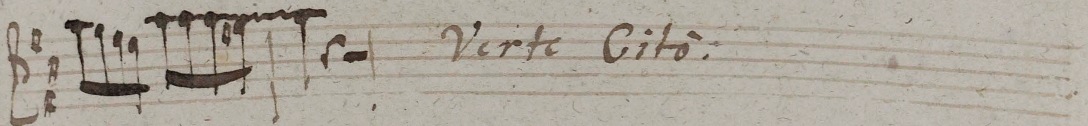 Verte Citõ.